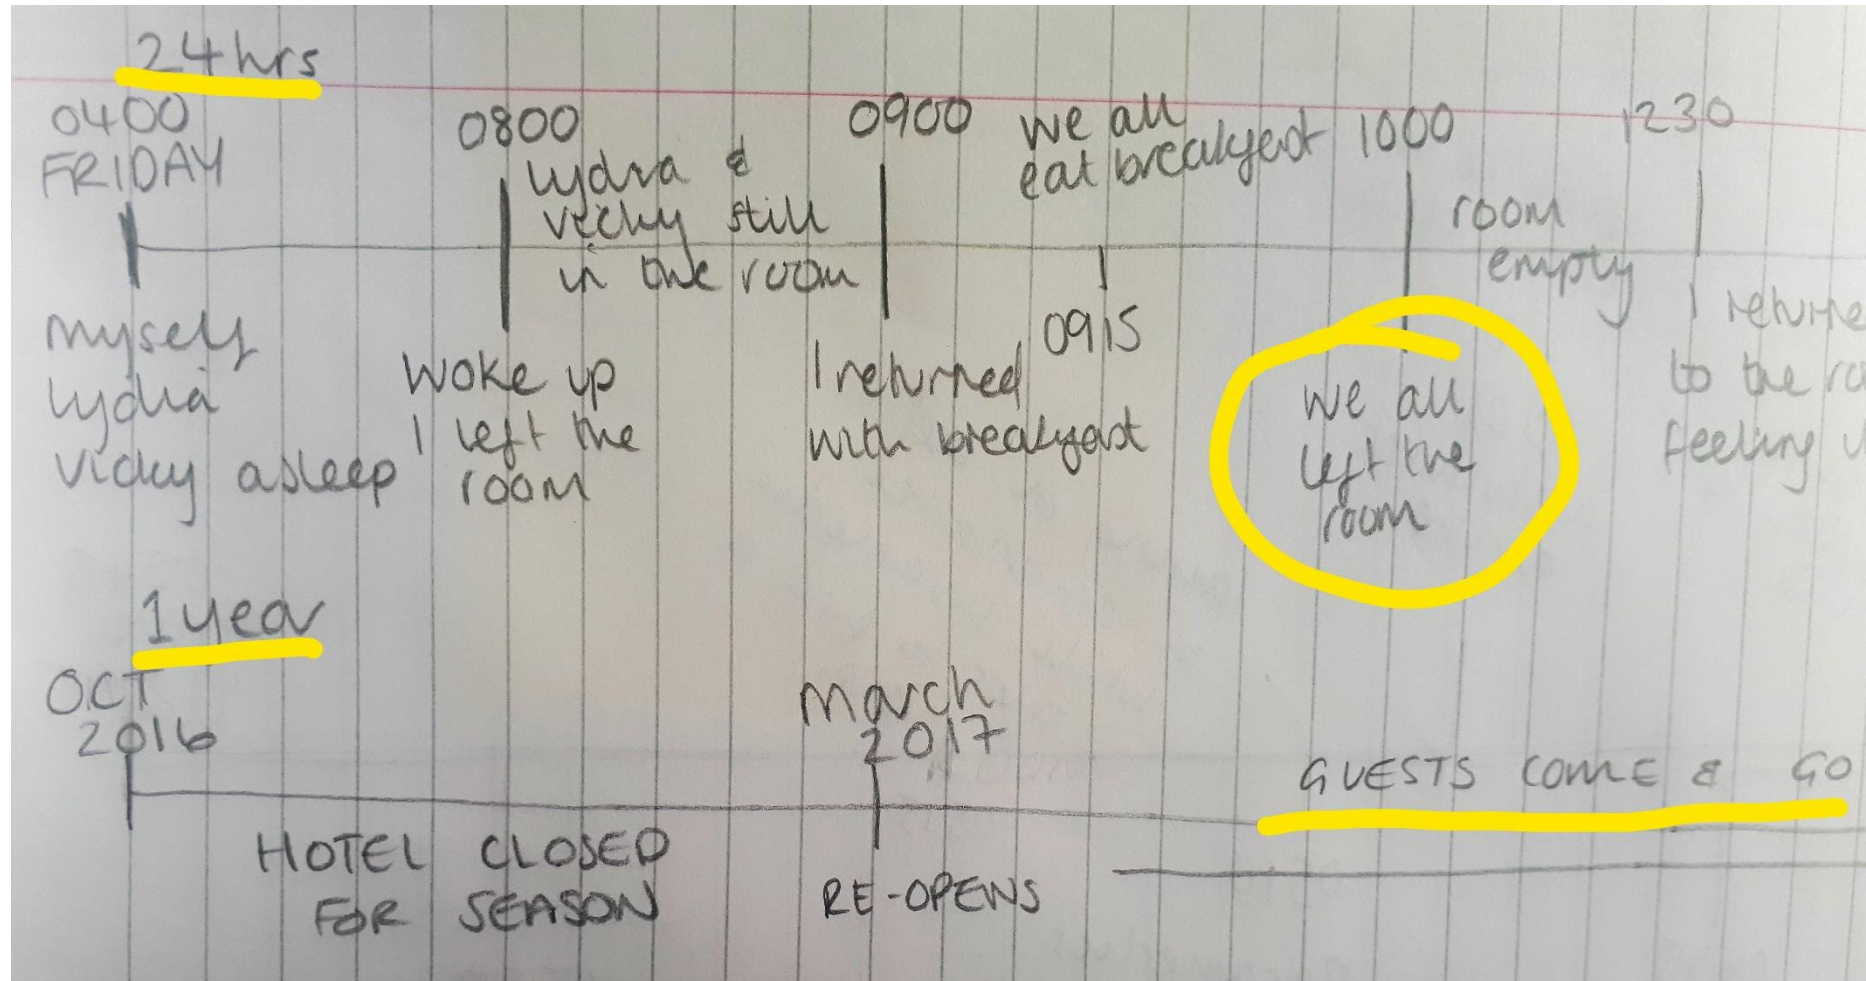 24 hrs
0400
FRIDAY
myself
lydia
vicky asleep
0800
lydia &
vicky still
in the room
woke up
I left the
room
0900
I returned
with breakfast
we all
eat breakfast
0915
1000
we all
left the
room
room
empty
1230
I returne
to the ro
feeling
1 year
OCT
2016
HOTEL CLOSED
FOR SEASON
march
2017
RE-OPENS
GUESTS COME & GO